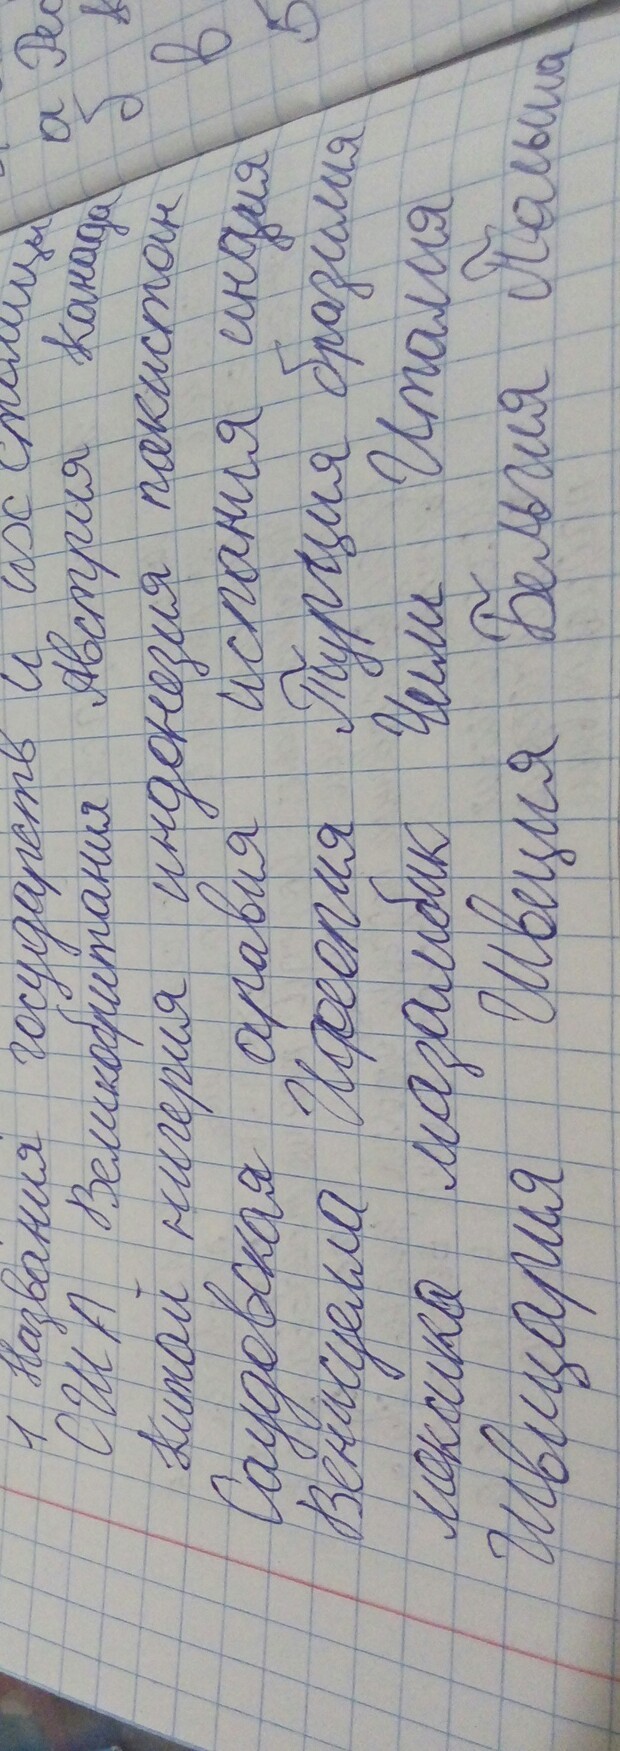 1 Названия государств и их столицы
США Великобритания Австрия Канада
Китай нигерия индонезия пакистан
Саудовская аравия испания индия
Венисуелла Турция бразилия
мексика мазамбик Чили Италия
Швицария Швеция Бельгия Польша
а
б
в
5